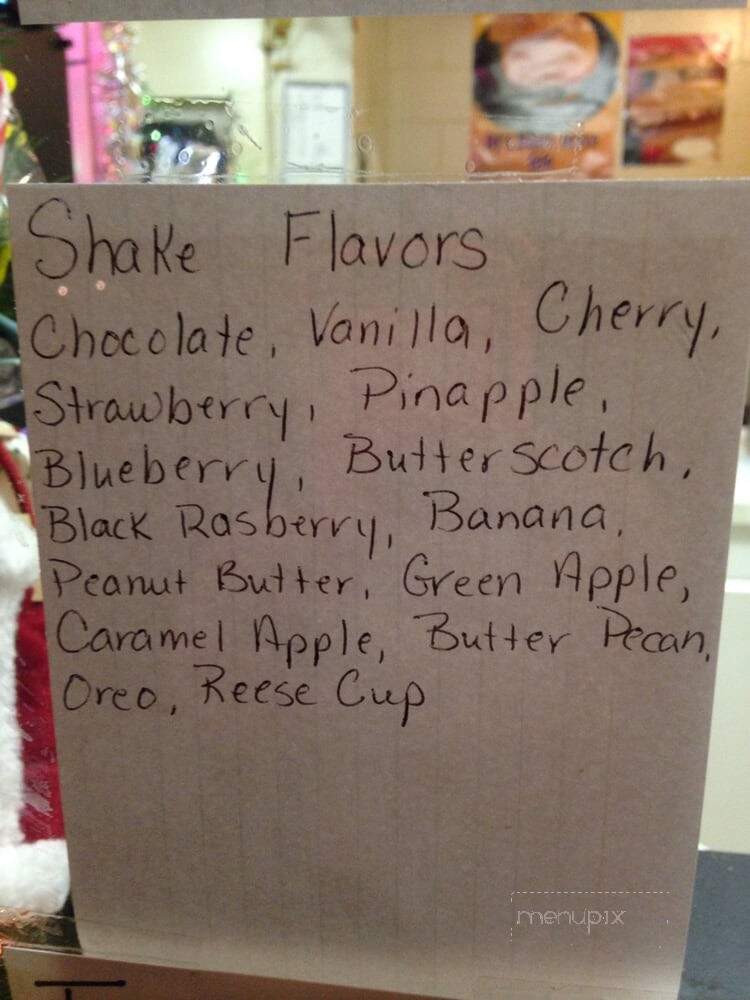 Shake Flavors
Chocolate, Vanilla, Cherry,
Strawberry, Pinapple,
Blueberry, Butterscotch,
Black Rasberry, Banana,
Peanut Butter, Green Apple,
Caramel Apple, Butter Pecan,
Oreo, Reese Cup
menupix